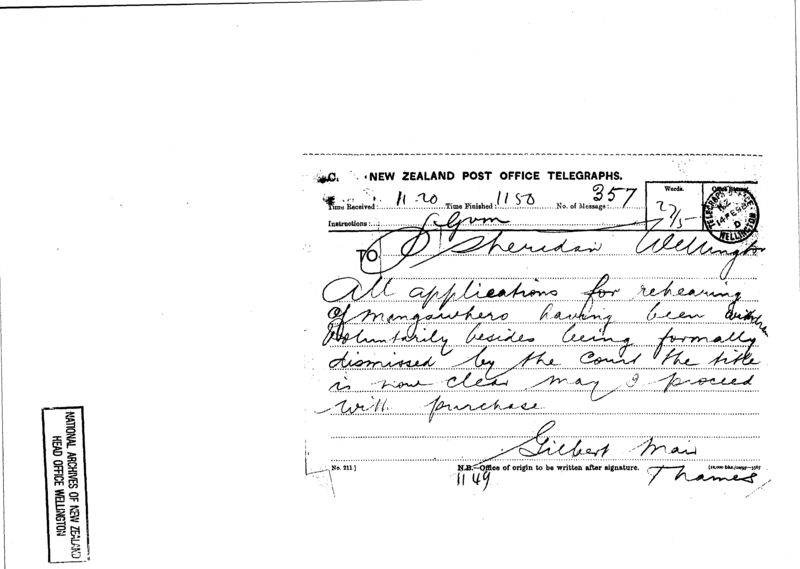 C. NEW ZEALAND POST OFFICE TELEGRAPHS.
Time Received: 11 20 Time Finished: 1150 No. of Message: 357
Words.
22/5
TELEGRAPH OFFICE
N.Z.
14 FE 98
D
WELLINGTON
Instructions: Govm
TO P Sheridan Wellington
All applications for rehearing
of mangawhero having been withdrawn
voluntarily besides being formally
dismissed by the Court the title
is now clear may I proceed
with purchase
Gilbert Mair
No. 211] N.B.—Office of origin to be written after signature.
1149 Thames
NATIONAL ARCHIVES OF NEW ZEALAND
HEAD OFFICE WELLINGTON